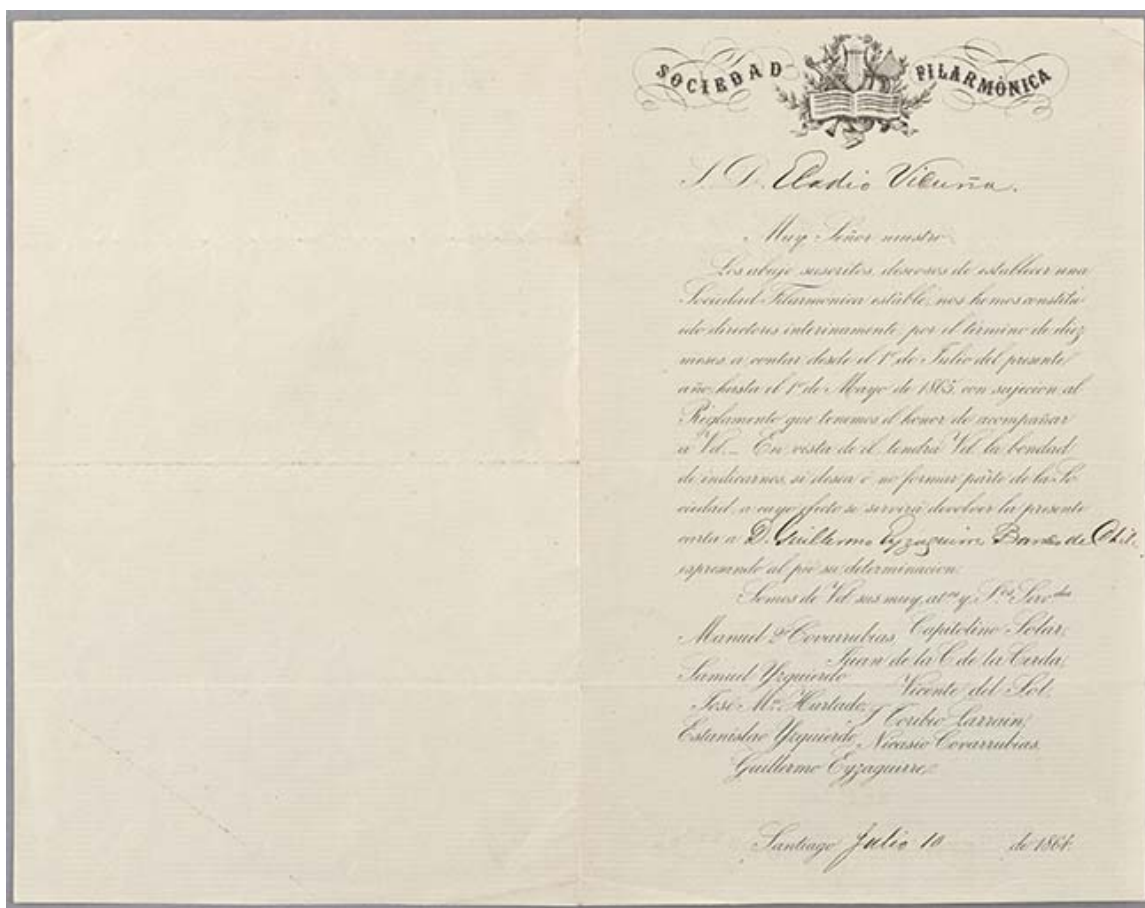 SOCIEDAD FILARMÓNICA
S. D. Eladio Vicuña.
Muy Señor nuestro
Los abajo suscritos, deseosos de establecer una
Sociedad Filarmónica estable, nos hemos constitu
ido directores interinamente por el término de diez
meses a contar desde el 1º de Julio del presente
año hasta el 1º de Mayo de 1865, con sujecion al
Reglamento que tenemos el honor de acompañar
a Vd. — En vista de él, tendrá Vd. la bondad
de indicarnos, si desea ó no formar parte de la So
ciedad, a cuyo efecto se servirá devolver la presente
carta a D. Guillermo Eyzaguirre Banco de Chile
espresando al pié su determinacion.
Somos de Vd. sus muy at.os y S.os Serv.dres
Manuel Covarrubias, Capitolino Solar,
Juan de la C. de la Cerda,
Samuel Yzquierdo Vicente del Sol.
José Mª. Hurtado, J. Toribio Larrain,
Estanislao Yzquierdo, Nicasio Covarrubias.
Guillermo Eyzaguirre.
Santiago Julio 10 de 1864.